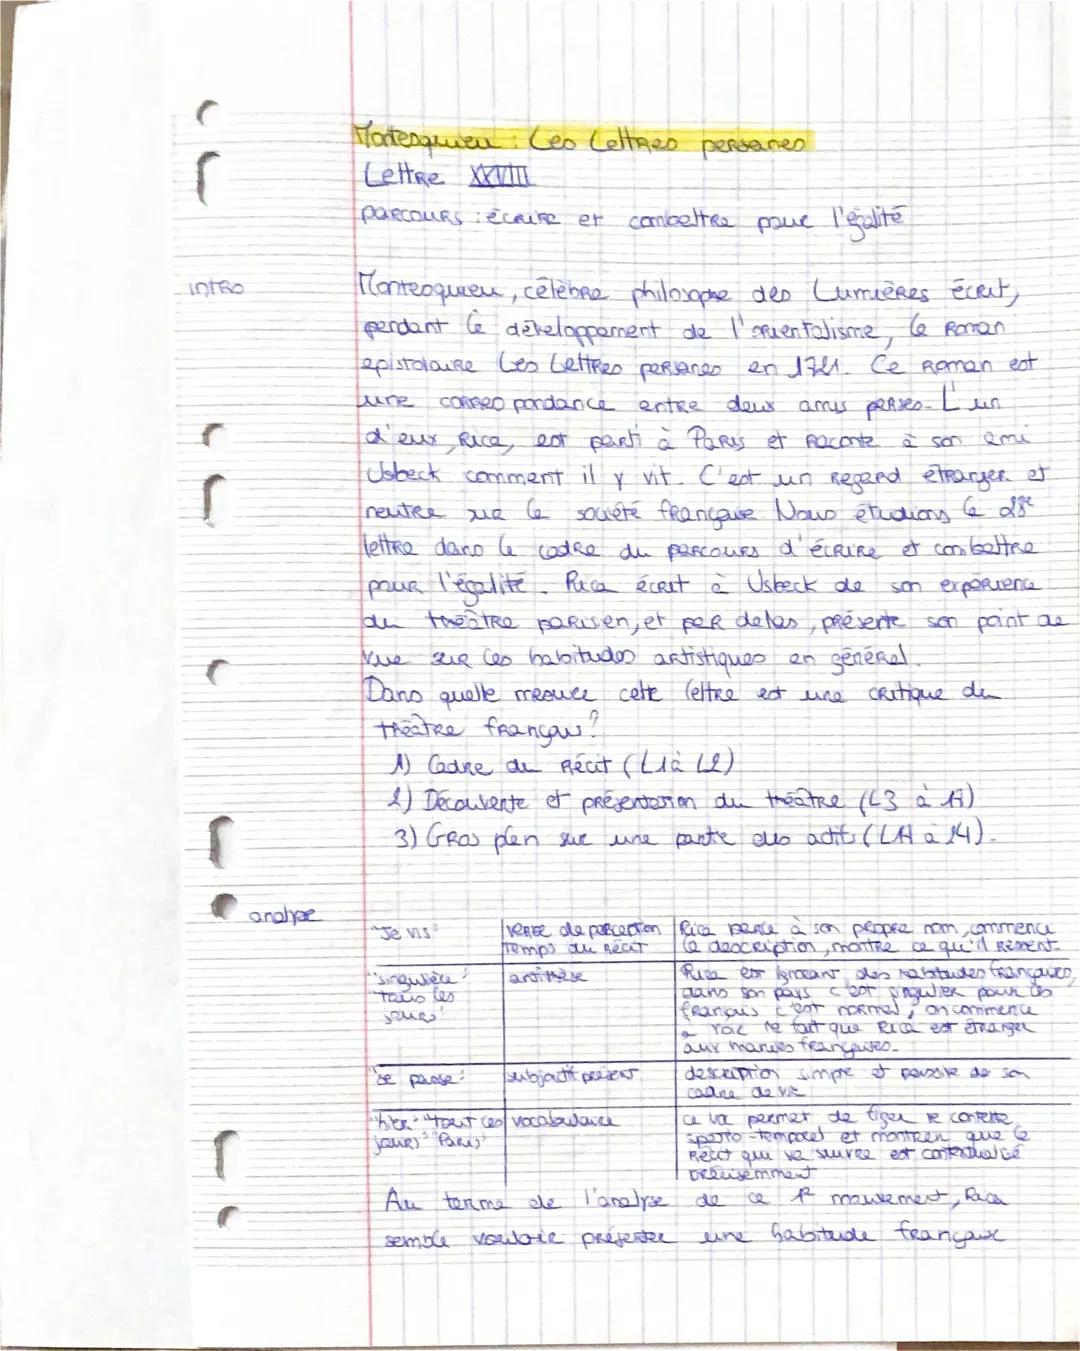 Montesquieu : Les Lettres persanes
Lettre XXVIII
parcours : écrire et combattre pour l'égalité
intro
Montesquieu, célèbre philosophe des Lumières écrit,
pendant le développement de l'orientalisme, le roman
epistolaire Les Lettres persanes en 1721. Ce roman est
une correspondance entre deux amis perses. L'un
d'eux, Rica, est parti à Paris et raconte à son ami
Usbeck comment il y vit. C'est un regard étranger et
neutre sur la société française. Nous étudions la 28e
lettre dans le cadre du parcours d'écrire et combattre
pour l'égalité. Rica écrit à Usbeck de son expérience
du théâtre parisien, et par delas, présente son point de
vue sur les habitudes artistiques en général.
Dans quelle mesure cette lettre est une critique du
théâtre français?
1) Cadre du récit (L1 à L2)
2) Découverte et présentation du théâtre (L3 à 11)
3) Gros plan sur une partie des (L11 à 14).
analyse
"Je vis" verbe de perception Rica parle à son propre nom, commence
temps du récit la description, montre ce qu'il ressent
"singulière" antithèse Rica est ignorant des habitudes françaises,
"tous les dans son pays c'est singulier pour les
jours" français c'est normal, on commence
à le fait que Rica est étranger
aux françaises.
"se passe" subjonctif présent description simple et de son
cadre de vie
"hier" "tout les vocabulaire ce va permet de figer le contexte
jours" "Paris" spatio-temporel et montrer que le
récit qui va suivre est contextualisé
précisemment
Au terme de l'analyse de ce 1er mouvement, Rica
semble vouloir présenter une habitude française